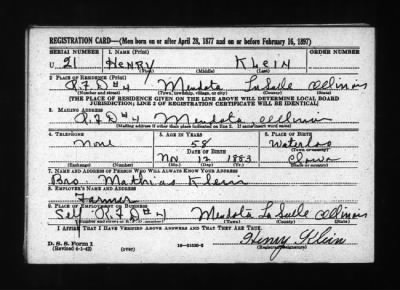 REGISTRATION CARD—(Men born on or after April 28, 1877 and on or before February 16, 1897)
SERIAL NUMBER 1. NAME (Print) ORDER NUMBER
U 21 HENRY KLEIN
(First) (Middle) (Last)
2. PLACE OF RESIDENCE (Print)
R.F.D #4 Mendota LaSalle Illinois
(Number and street) (Town, township, village, or city) (County) (State)
[THE PLACE OF RESIDENCE GIVEN ON THE LINE ABOVE WILL DETERMINE LOCAL BOARD
JURISDICTION; LINE 2 OF REGISTRATION CERTIFICATE WILL BE IDENTICAL]
3. MAILING ADDRESS
R.F.D #4 Mendota Illinois
(Mailing address if other than place indicated on line 2. If same insert word same)
4. TELEPHONE 5. AGE IN YEARS 6. PLACE OF BIRTH
None 58 Waterloo
DATE OF BIRTH (Town or county)
Nov 12 1883 Iowa
(Exchange) (Number) (Mo.) (Day) (Yr.) (State or country)
7. NAME AND ADDRESS OF PERSON WHO WILL ALWAYS KNOW YOUR ADDRESS
Bro. Mathias Klein
8. EMPLOYER'S NAME AND ADDRESS
Farmer
9. PLACE OF EMPLOYMENT OR BUSINESS
Self R.F.D #4 Mendota LaSalle Illinois
(Number and street or R. F. D. number) (Town) (County) (State)
I AFFIRM THAT I HAVE VERIFIED ABOVE ANSWERS AND THAT THEY ARE TRUE.
D. S. S. Form 1 Henry Klein
(Revised 4-1-42) (over) (Registrant's signature)